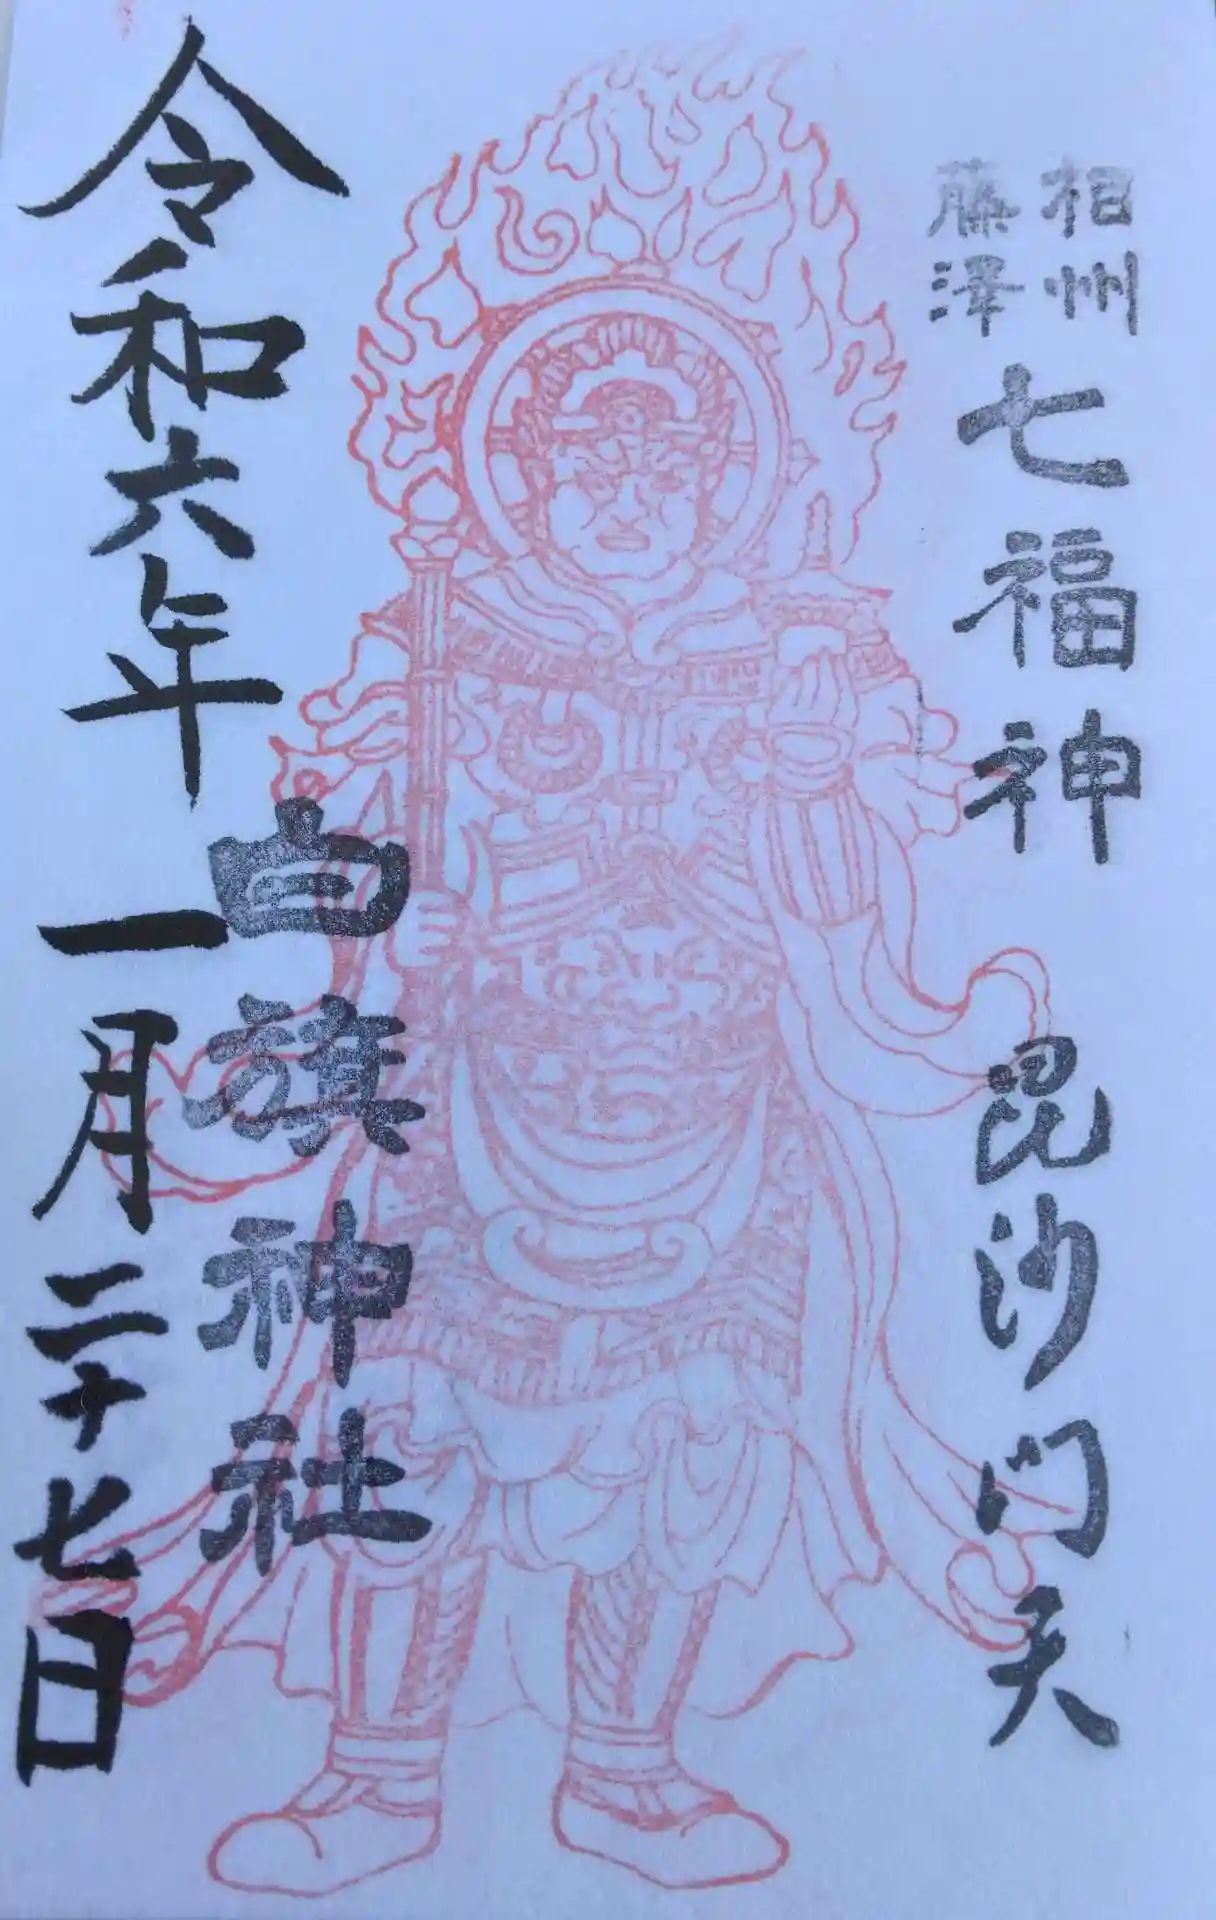 相州
藤澤
七福神　毘沙門天
白旗神社
令和六年一月二十七日